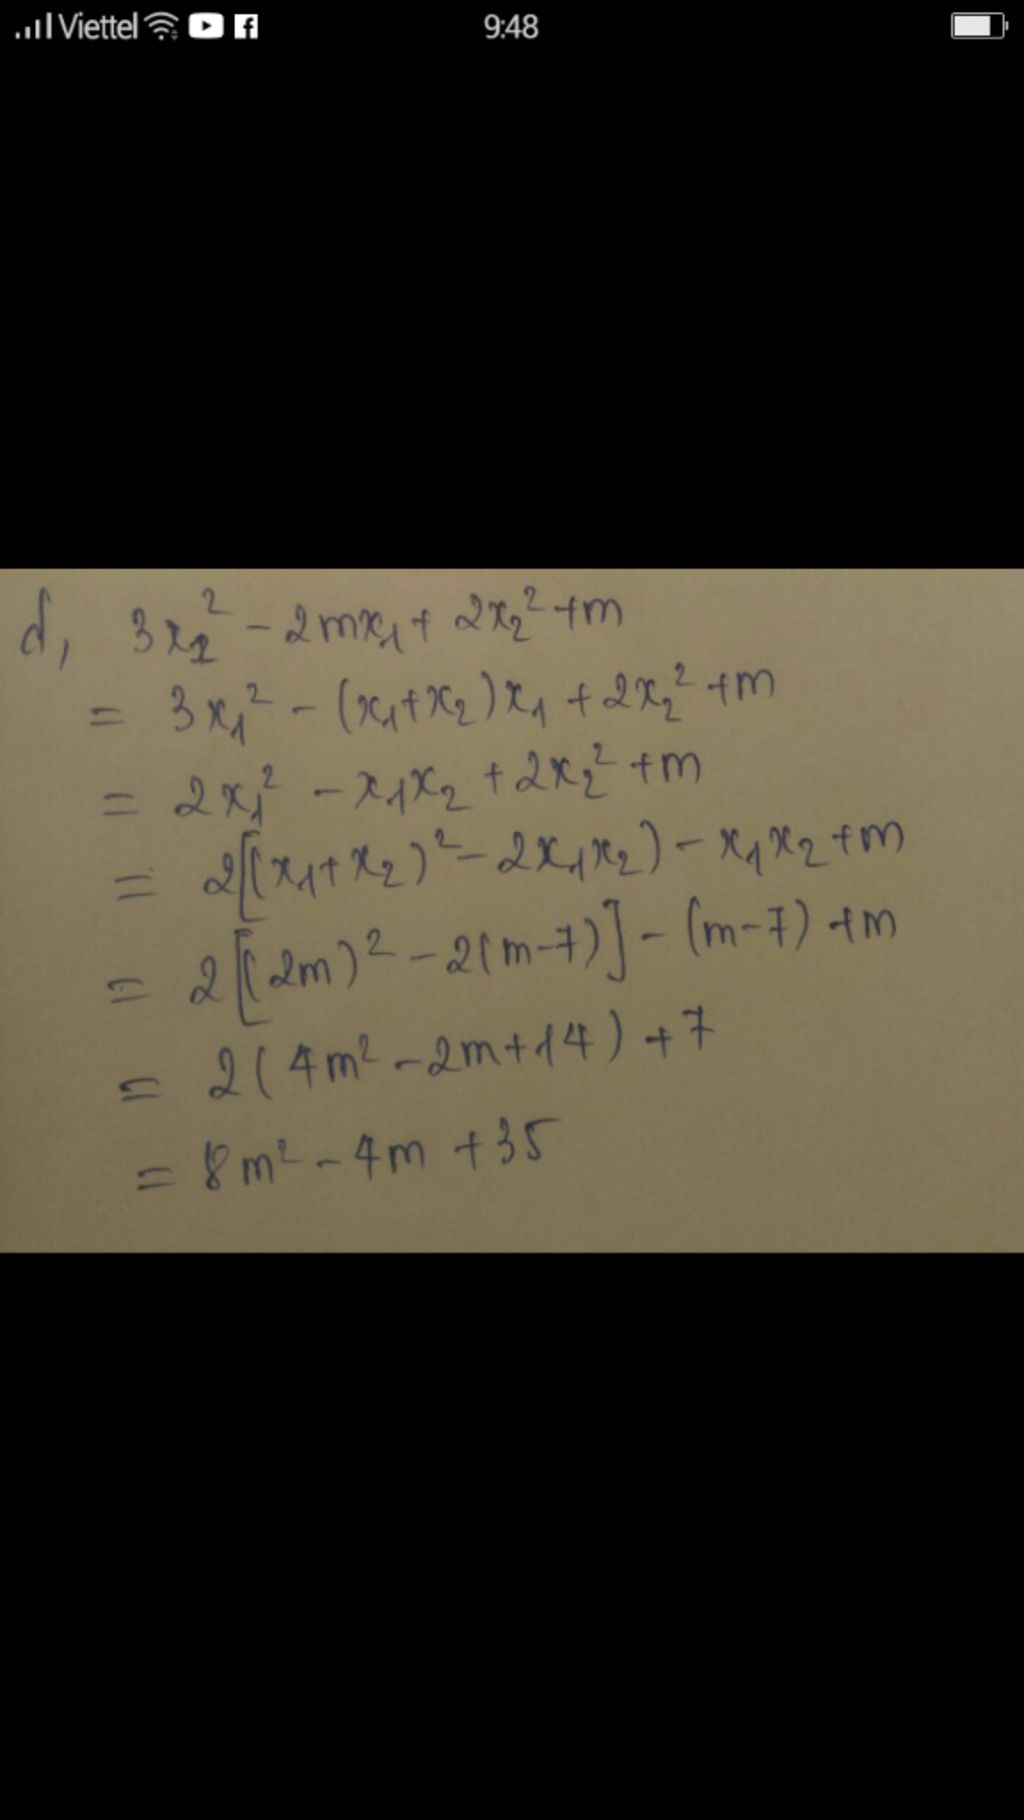 Viettel 9:48
d, 3x₁² - 2mx₁ + 2x₂² + m
= 3x₁² - (x₁+x₂)x₁ + 2x₂² + m
= 2x₁² - x₁x₂ + 2x₂² + m
= 2[(x₁+x₂)² - 2x₁x₂) - x₁x₂ + m
= 2[(2m)² - 2(m-7)] - (m-7) + m
= 2(4m² - 2m + 14) + 7
= 8m² - 4m + 35